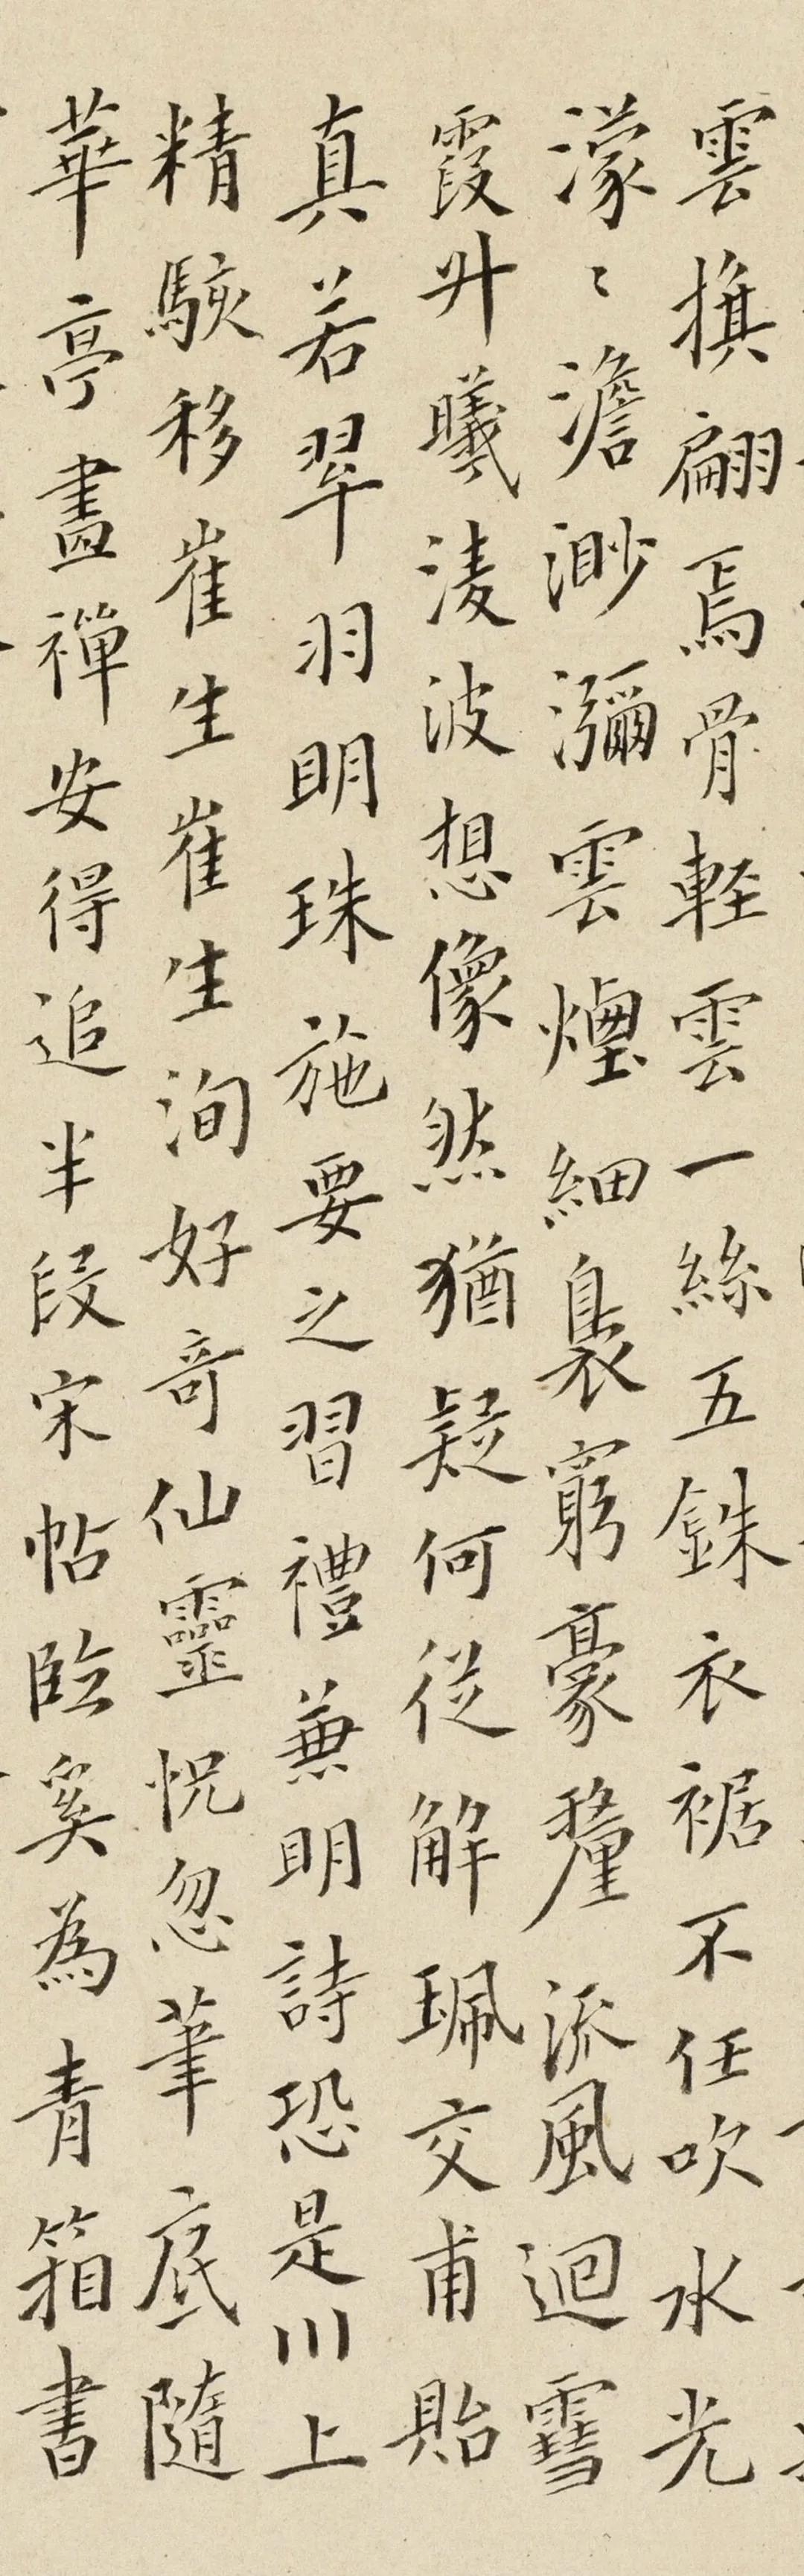 雲摸翩焉骨輕雲一絲五銖衣裾不任吹水光
濛〻澹渺瀰雲煙細裊窮豪釐流風迴雪
霞升曦淩波想像然猶疑何從解珮交甫貽
真若翠羽明珠施要之習禮兼明詩恐是川上
精駭移崔生崔生洵好奇仙靈怳忽筆底隨
華亭畫禪安得追半段宋帖臨奚為青箱書